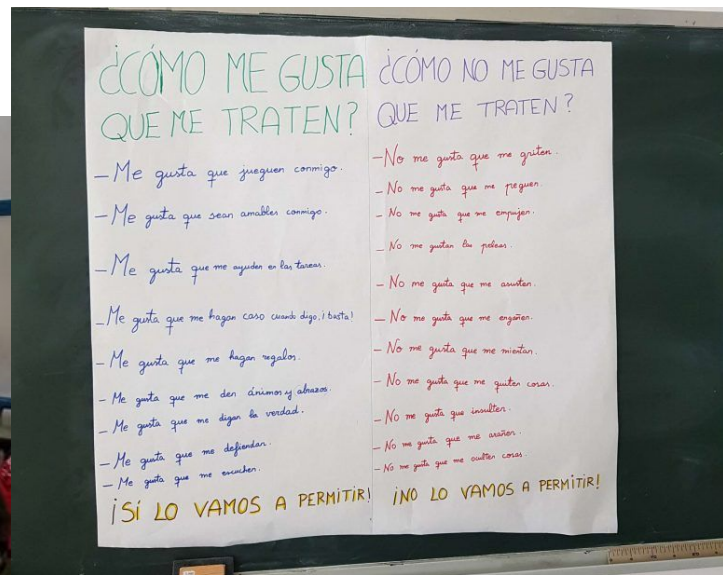 ¿CÓMO ME GUSTA
QUE ME TRATEN?
- Me gusta que jueguen conmigo.
- Me gusta que sean amables conmigo.
- Me gusta que me ayuden en las tareas.
- Me gusta que me hagan caso cuando digo, ¡basta!
- Me gusta que me hagan regalos.
- Me gusta que me den ánimos y abrazos.
- Me gusta que me digan la verdad.
- Me gusta que me defiendan.
- Me gusta que me escuchen.
¡SÍ LO VAMOS A PERMITIR!
¿CÓMO NO ME GUSTA
QUE ME TRATEN?
- No me gusta que me griten.
- No me gusta que me peguen.
- No me gusta que me empujen.
- No me gustan las peleas.
- No me gusta que me asusten.
- No me gusta que me engañen.
- No me gusta que me mientan.
- No me gusta que me quiten cosas.
- No me gusta que insulten.
- No me gusta que me arañen.
- No me gusta que me oculten cosas.
¡NO LO VAMOS A PERMITIR!